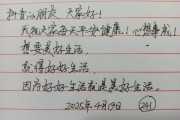 抖音的朋友,大家好!
我祝大家每天平安健康!心想事成!
想要美好生活,
就得好好生活,
因为好好生活就是美好生活。
2025年4月19日 (241)